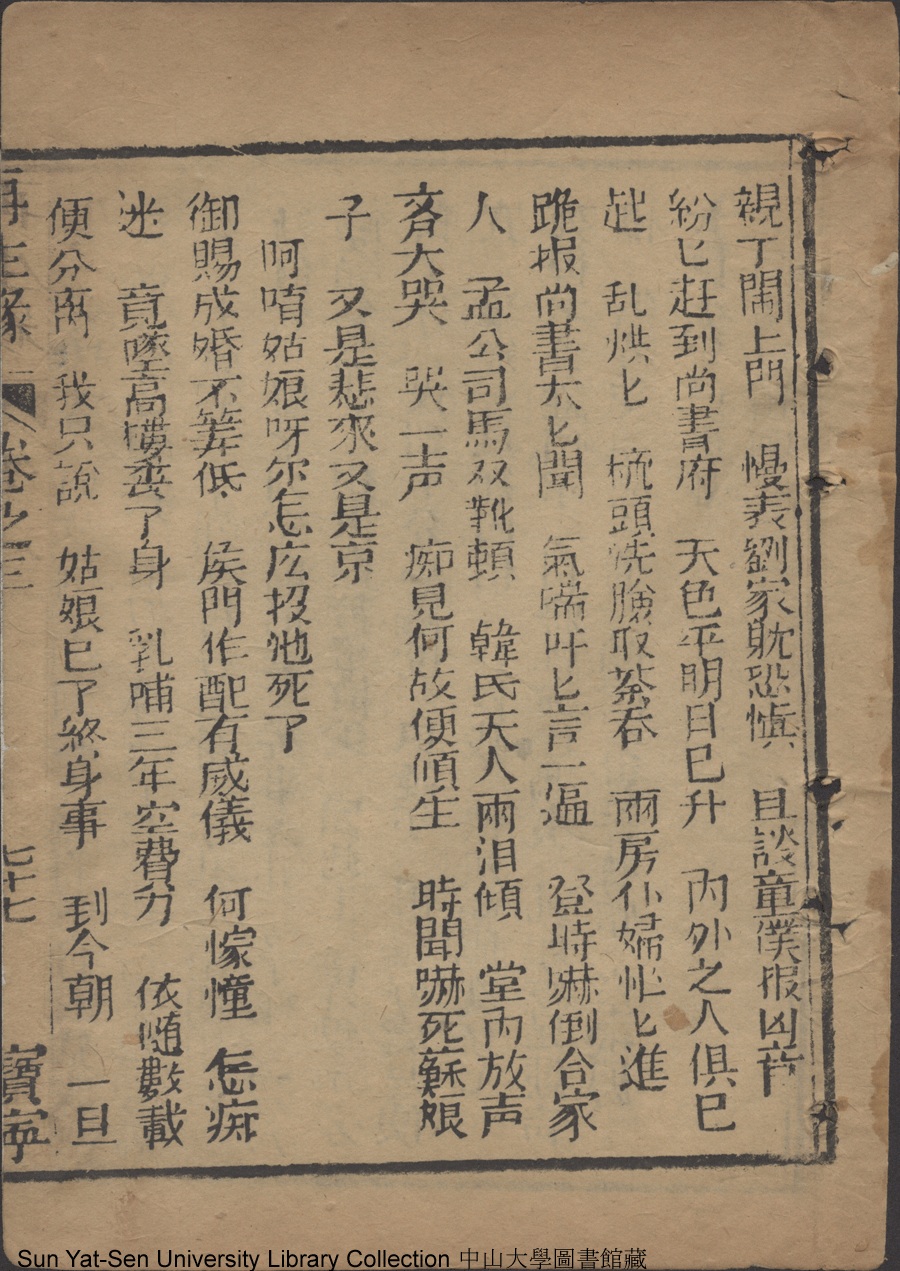 親丁鬧上門　慢表劉家躭恐懼　且談童僕报凶音
紛匕赶到尚書府　天色平明日巳升　內外之人俱巳
起　乱烘匕　梳頭洗臉取茶吞　兩房仆婦忙匕進
跪报尚書太匕聞　氣喘吁匕言一遍　登時嚇倒合家
人　孟公司馬双靴頓　韓氏夭人兩泪傾　堂內放声
斉大哭　哭一声　痴見何故便傾生　時聞嚇死蘇娘
子　又是悲來又是京
呵唷姑娘呀尔怎広投池死了
御賜成婚不筭低　侯門作配有威儀　何㦆憧　怎痴
迷　竟墜高樓丧了身　乳哺三年空費力　依随數載
便分离　我只說　姑娘巳了終身事　到今朝　一旦
再生緣　卷之三　七十七　寶寧
Sun Yat-Sen University Library Collection 中山大學圖書館藏